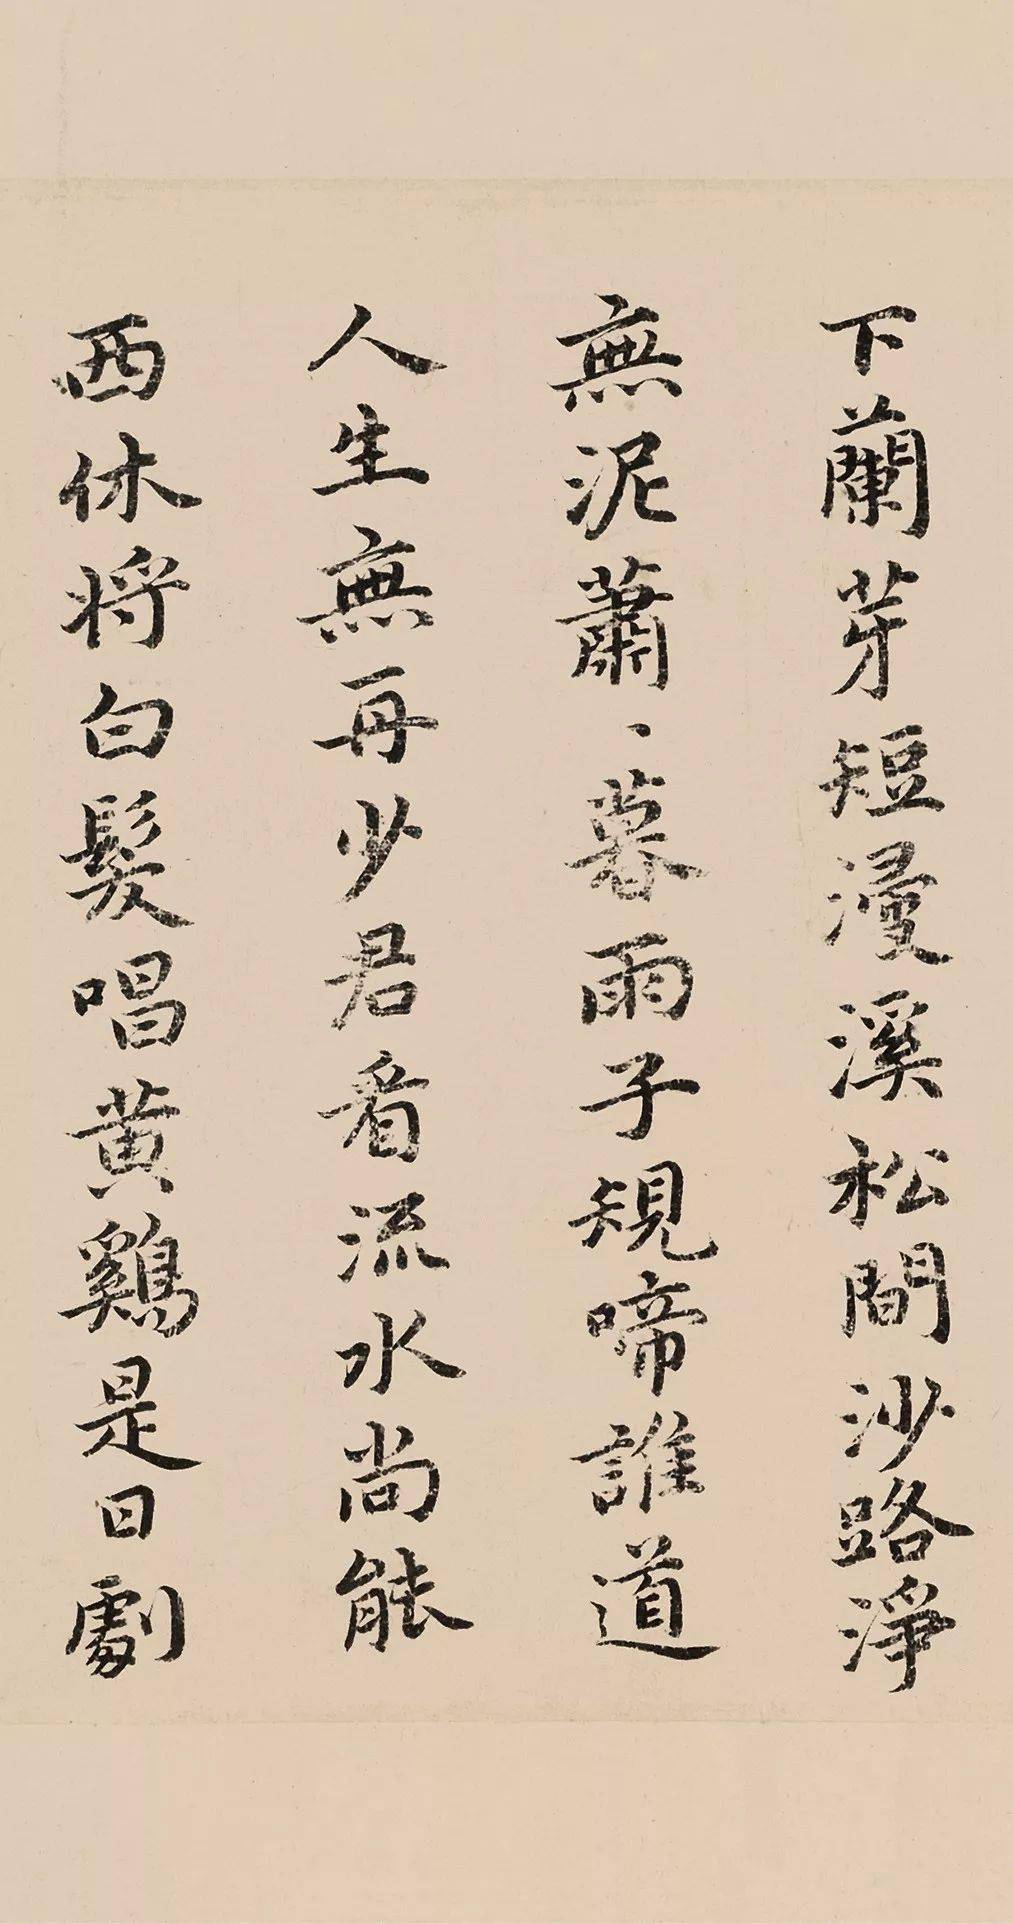 下蘭芽短漫溪松間沙路淨
無泥蕭、暮雨子規啼誰道
人生無再少君看流水尚能
西休将白髮唱黄鷄是日劇